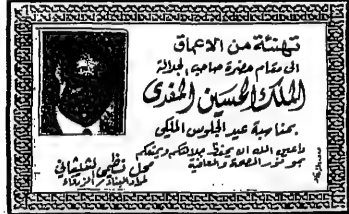 تهنئة من الاعماق
الى مقام حضرة صاحب الجلالة
الملك الحسين المفدى
بمناسبة عيد الجلوس الملكي
داعين الله ان يحفظ جلالتكم ويمتعكم
بموفور الصحة والعافية
محل